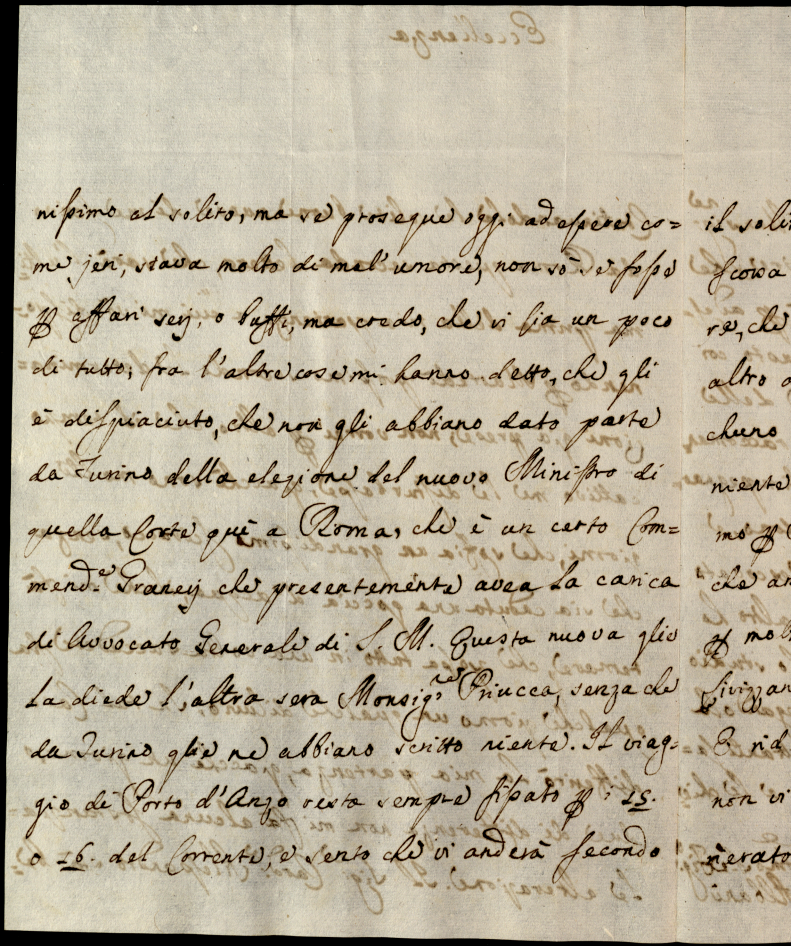 nissimo al solito, ma se prosegue oggi ad essere co=
me jeri, stava molto di mal' umore, non sò se fosse
per affari serj, o buffi, ma credo, che vi sia un poco
di tutto; fra l'altre cose mi hanno detto, che gli
è dispiaciuto, che non gli abbiano dato parte
da Turino della elezione del nuovo Ministro di
quella Corte quì a Roma, che è un certo Com=
mend.e Graneij che presentemente avea la carica
di Avvocato Generale di S. M. Questa nuova glie
la diede l'altra sera Monsig.re Priucca, senza che
da Turino glie ne abbiano scritto niente. Il viag=
gio di Porto d'Anzo resta sempre fissato per i 15.
o 16. del Corrente, e sento che vi anderà secondo
il soli
scorsa
re, che
altro
chuno
niente
mo per
che an
per mol
E rid
non vi
nerato